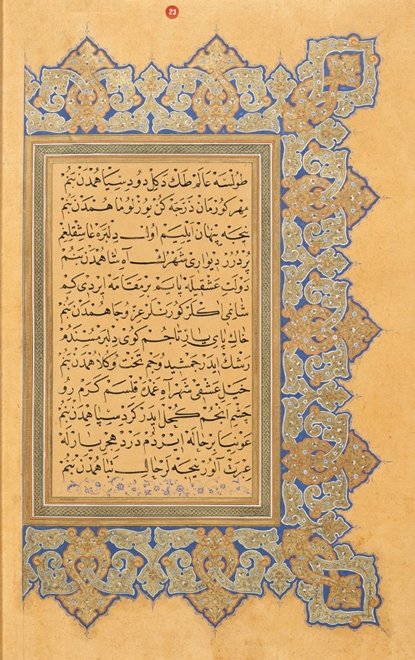 طولسه عالم طك دكل دود سياهمدن بنم
مهر كورمان ذره جه كن يوزلو ماهمدن بنم
نيجه پنهان ايليم اول دلبره عاشقلغم
پر درر ديوارى شهرك آه بنم
دولت عشقيله باشم بر مقامه ايردى كم
اكلر كورنلر عز و جاهمدن بنم
خاك پاى يار تاجم كوى دلبر مسندم
رشك ايدر جمشيد و جم تخت و كلاهمدن بنم
خيل عشقى شهر غمدن قلسم كرم رو
چشم انجم كحل ايدر كرد سپاهمدن بنم
عونيا بر حاله ايردم درد هجر يارله
عبرت آلور نيجه لر حال تباهمدن بنم
23